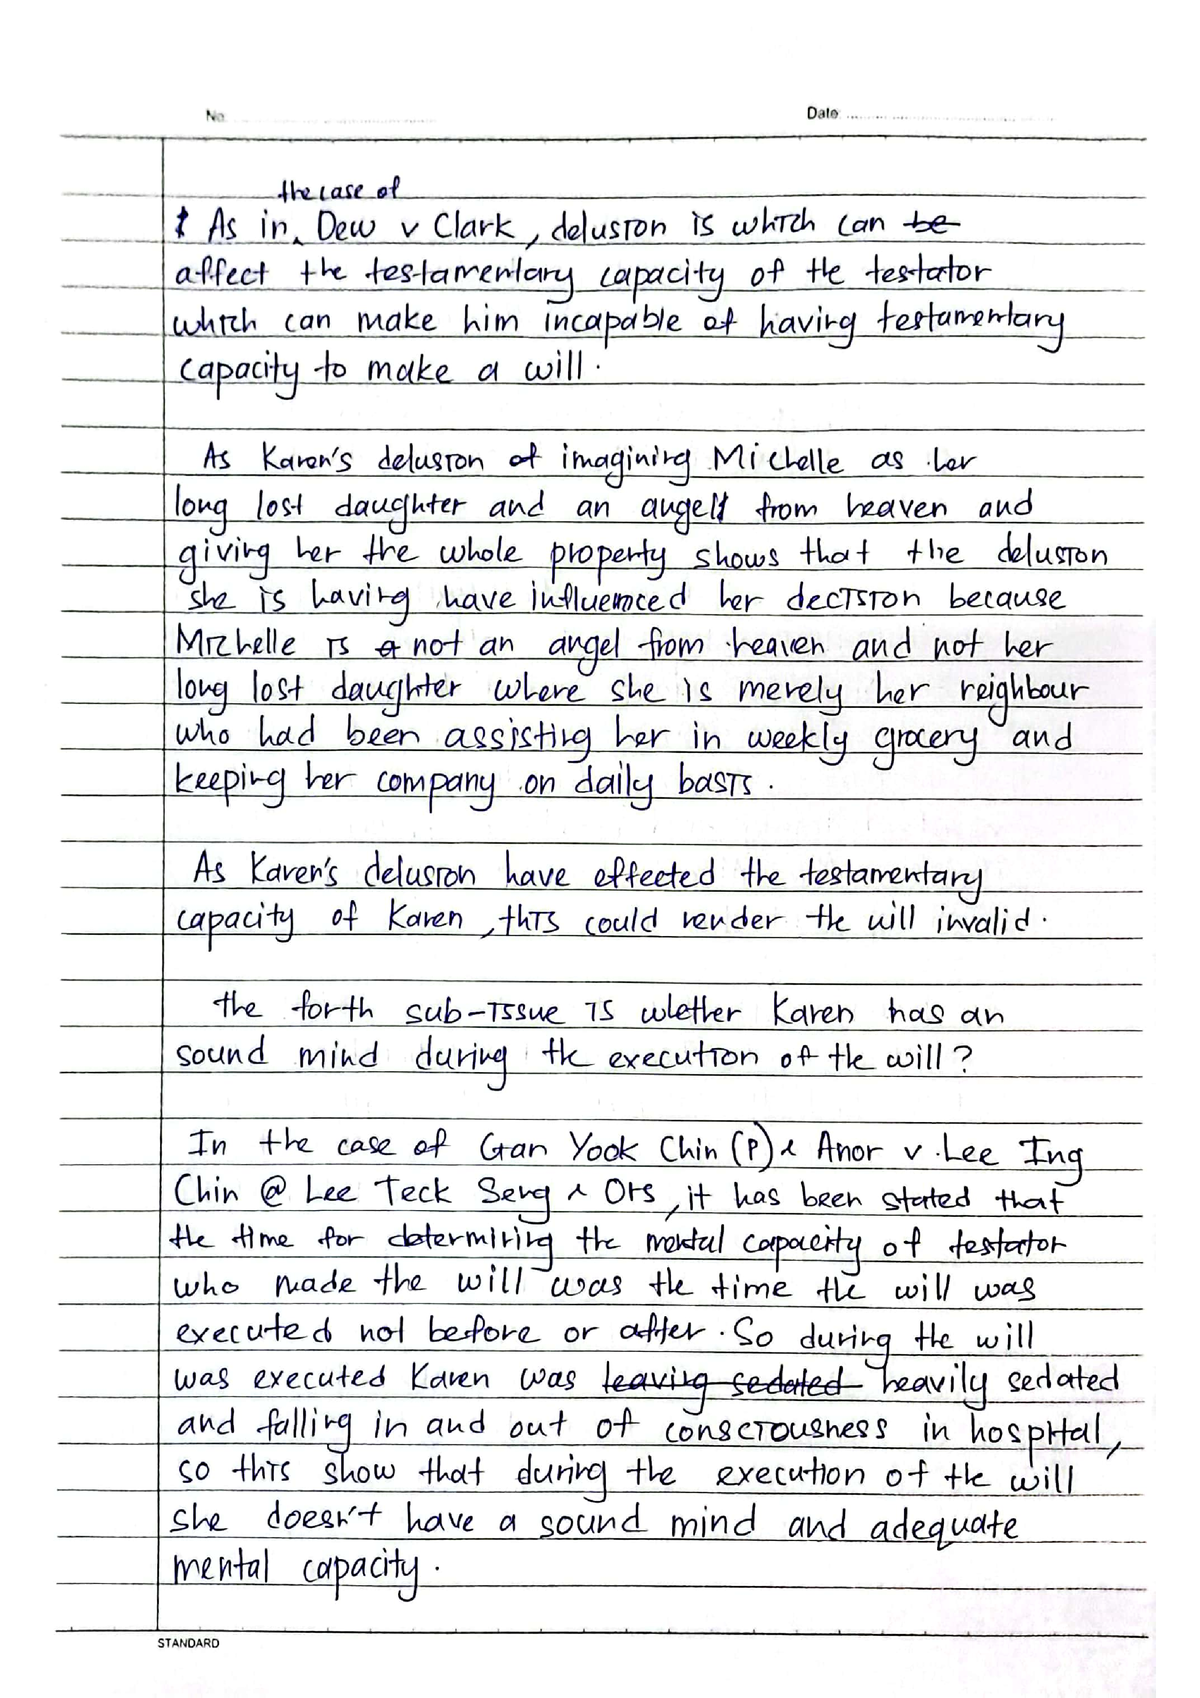 No.
Date
the case of
As in Dew v Clark, delusion is which can be
affect the testamentary capacity of the testator
which can make him incapable of having testamentary
capacity to make a will.
As Karen's delusion of imagining Michelle as her
long lost daughter and an angel from heaven and
giving her the whole property shows that the delusion
she is having have influenced her decision because
Michelle is a not an angel from heaven and not her
long lost daughter where she is merely her neighbour
who had been assisting her in weekly grocery and
keeping her company on daily basis.
As Karen's delusion have effected the testamentary
capacity of Karen, this could render the will invalid.
the forth sub-issue is whether Karen has an
sound mind during the execution of the will?
In the case of Gan Yook Chin (P) & Anor v Lee Ing
Chin @ Lee Teck Seng & Ors, it has been stated that
the time for determining the mental capacity of testator
who made the will was the time the will was
executed not before or after. So during the will
was executed Karen was leaving sedated heavily sedated
and falling in and out of consciousness in hospital,
so this show that during the execution of the will
she doesn't have a sound mind and adequate
mental capacity.
STANDARD